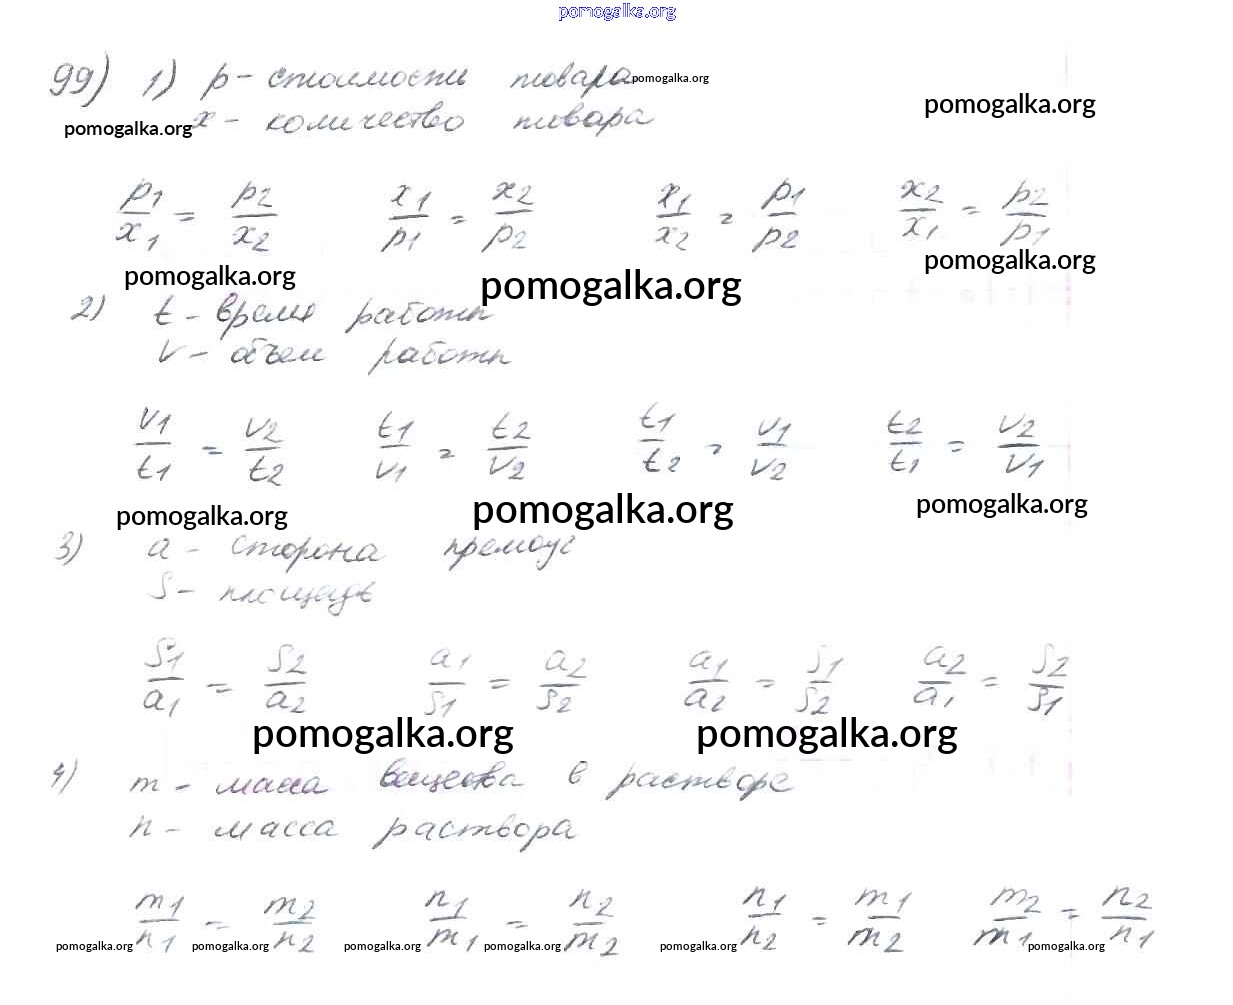 pomogalka.org
99) 1) p - стоимости товара pomogalka.org
pomogalka.org
pomogalka.org x - количество товара
p1/x1 = p2/x2 x1/p1 = x2/p2 x1/x2 = p1/p2 x2/x1 = p2/p1
pomogalka.org pomogalka.org pomogalka.org
2) t - время работы
V - объем работы
V1/t1 = V2/t2 t1/V1 = t2/V2 t1/t2 = V1/V2 t2/t1 = V2/V1
pomogalka.org pomogalka.org pomogalka.org
3) a - сторона прямоуг
S - площадь
S1/a1 = S2/a2 a1/S1 = a2/S2 a1/a2 = S1/S2 a2/a1 = S2/S1
pomogalka.org pomogalka.org
4) m - масса вещества в растворе
n - масса раствора
m1/n1 = m2/n2 n1/m1 = n2/m2 n1/n2 = m1/m2 m2/m1 = n2/n1
pomogalka.org pomogalka.org pomogalka.org pomogalka.org pomogalka.org pomogalka.org